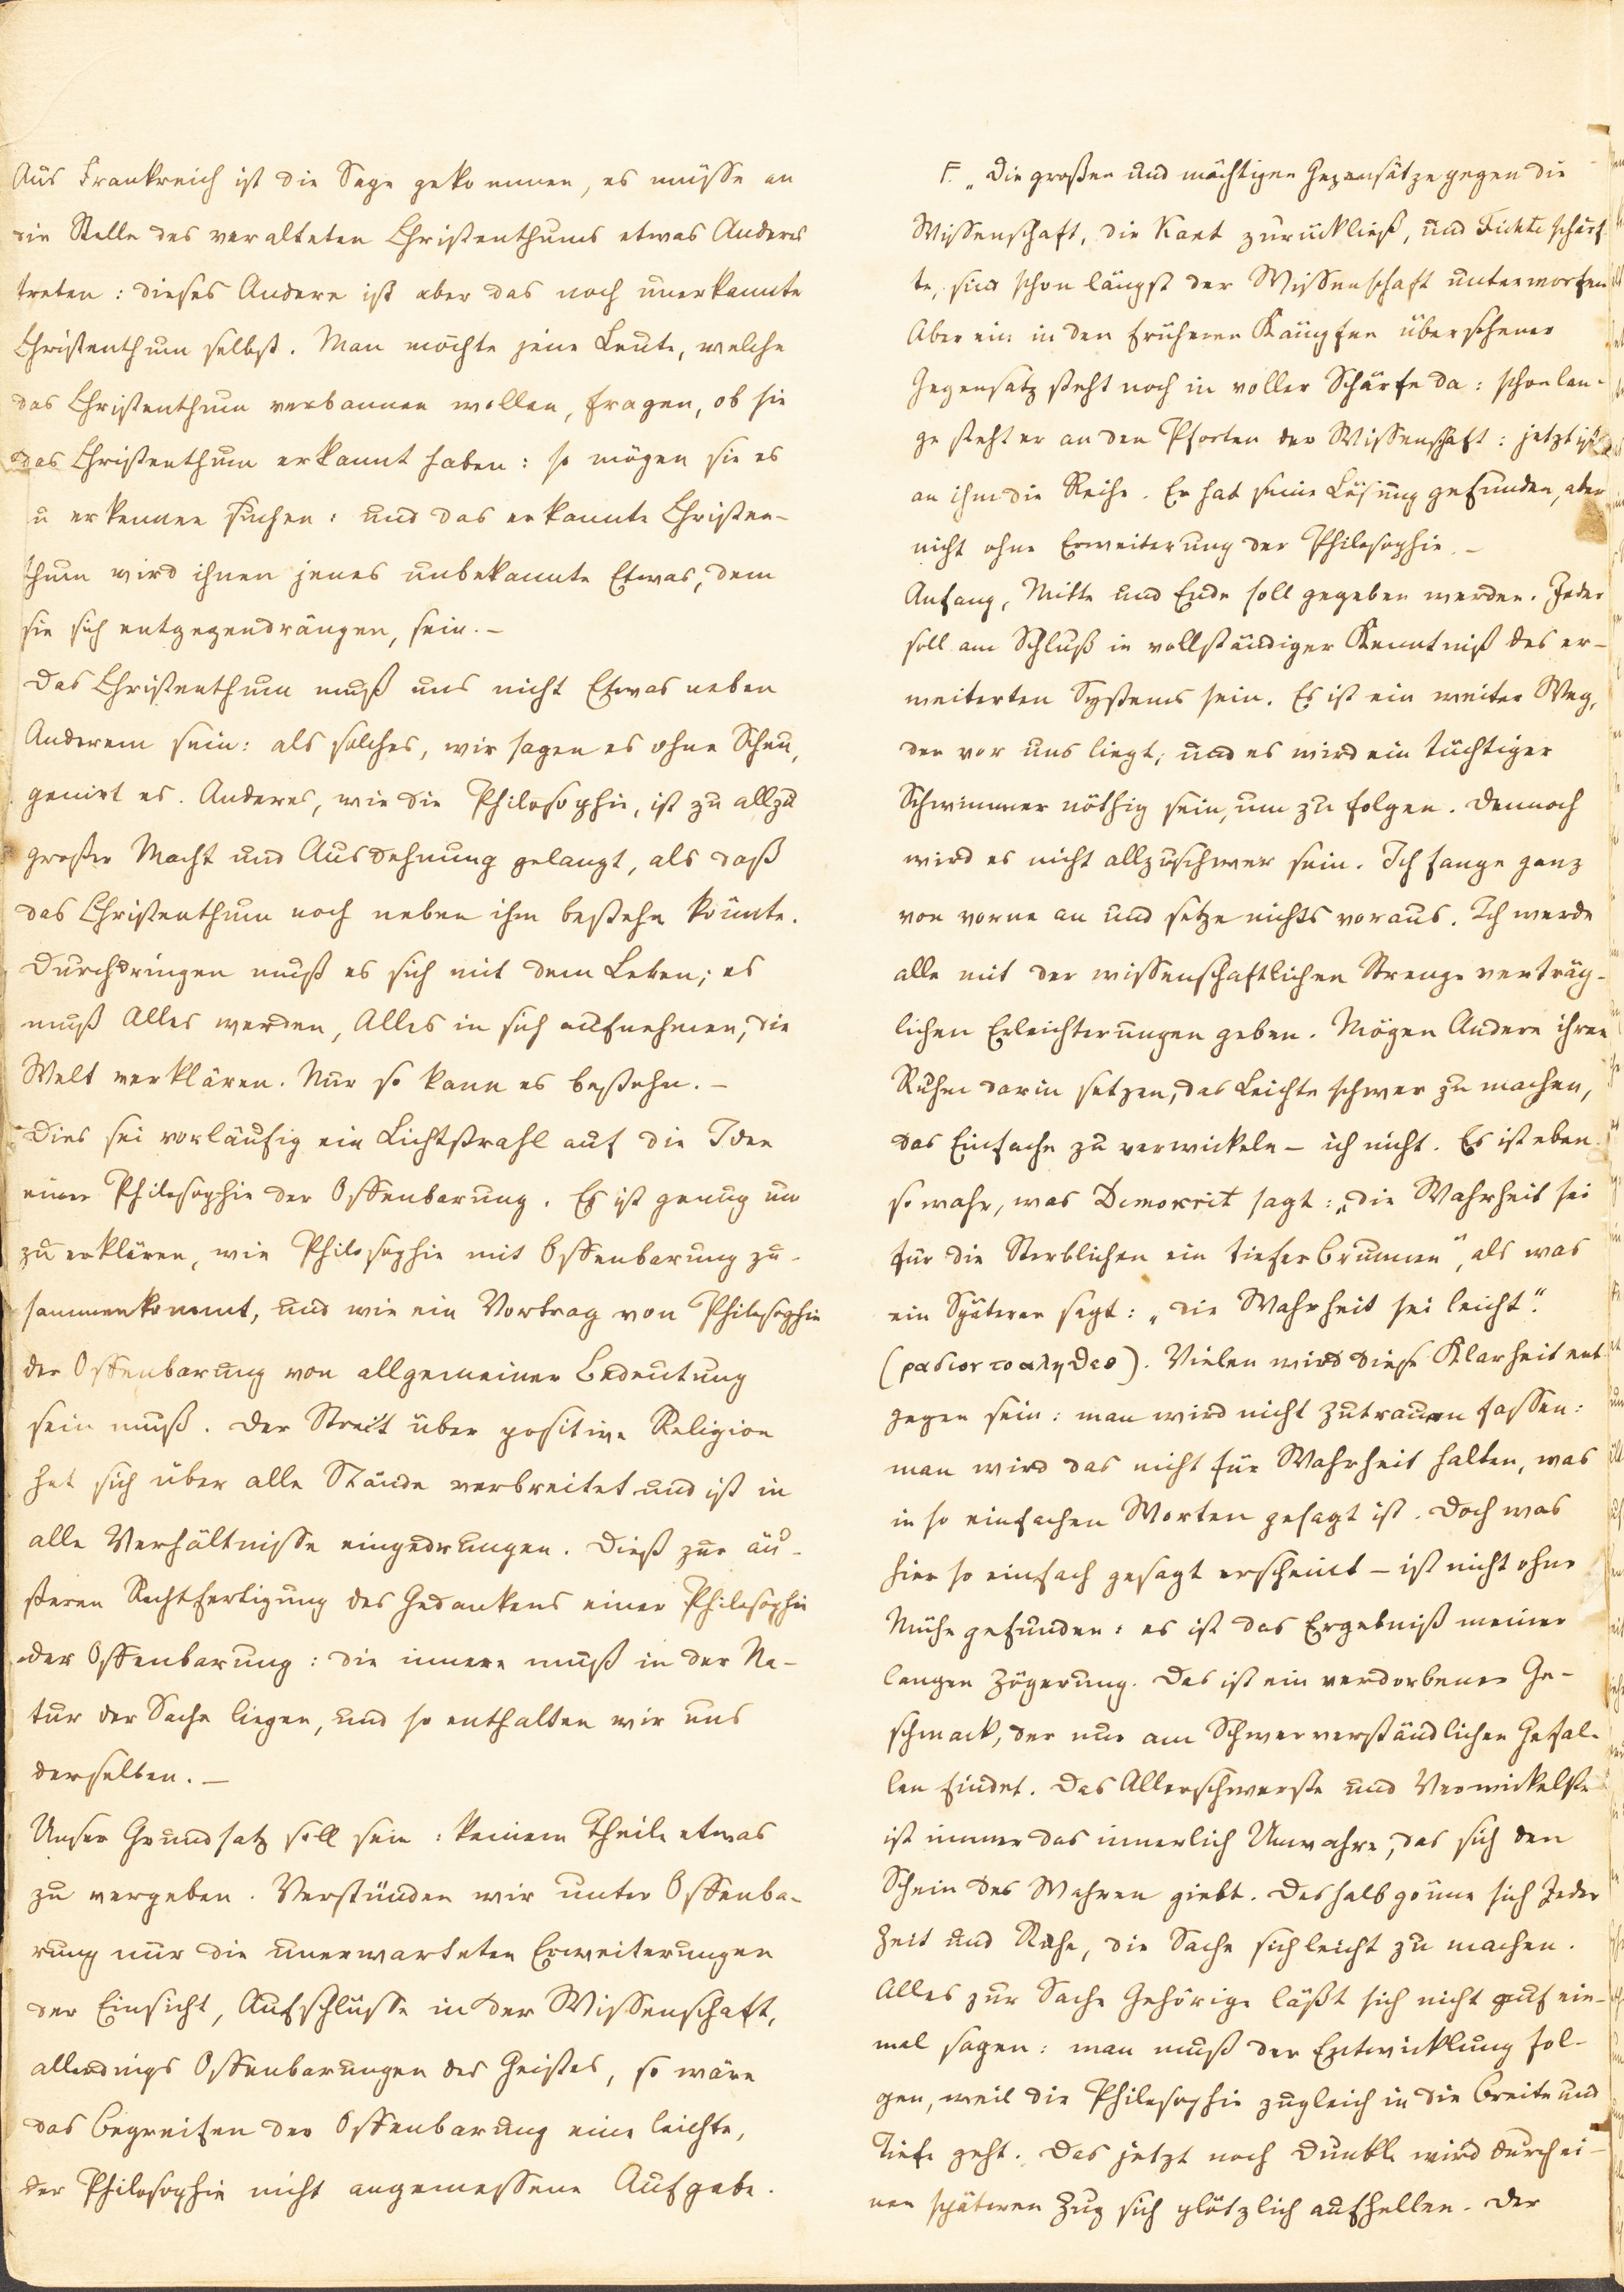 Aus Frankreich ist die Sage gekommen, es müsse an
die Stelle des veralteten Christenthums etwas Anderes
treten: dieses Andere ist aber das noch unerkannte
Christenthum selbst. Man möchte jene Leute, welche
das Christenthum verbannen wollen, fragen, ob sie
das Christenthum erkannt haben: so mögen sie es
zu erkennen suchen: und das erkannte Christen-
thum wird ihnen jenes unbekannte Etwas, dem
sie sich entgegendrängen, sein. –
Das Christenthum muß uns nicht Etwas neben
Anderem sein: als solches, wir sagen es ohne Scheu,
genirt es. Anderes, wie die Philosophie, ist zu allzu
großer Macht und Ausdehnung gelangt, als daß
das Christenthum noch neben ihm bestehn könnte.
Durchdringen muß es sich mit dem Leben; es
muß Alles werden, Alles in sich aufnehmen, die
Welt verklären. Nur so kann es bestehn. –
Dies sei vorläufig ein Lichtstrahl auf die Idee
einer Philosophie der Offenbarung. Es ist genug um
zu erklären, wie Philosophie mit Offenbarung zu-
sammenkommt, und wie ein Vortrag von Philosophie
der Offenbarung von allgemeiner Bedeutung
sein muß. Der Streit über positive Religion
hat sich über alle Stände verbreitet und ist in
alle Verhältnisse eingedrungen. Dieß zur äu-
ßeren Rechtfertigung des Gedankens einer Philosophie
der Offenbarung: die innere muß in der Na-
tur der Sache liegen, und so enthalten wir uns
derselben. –
Unser Grundsatz soll sein: keinem Theile etwas
zu vergeben. Verstünden wir unter Offenba-
rung nur die unerwarteten Erweiterungen
der Einsicht, Aufschlüsse in der Wissenschaft,
allerdings Offenbarungen des Geistes, so wäre
das Begreifen der Offenbarung eine leichte,
der Philosophie nicht angemessene Aufgabe.
F. „Die großen und mächtigen Gegensätze gegen die
Wissenschaft, die Kant zurückließ, und Fichte schärf
te, sind schon längst der Wissenschaft unterworfen
Aber ein in den früheren Kämpfen übersehener
Gegensatz steht noch in voller Schärfe da: schon lan-
ge steht er an den Pforten der Wissenschaft: jetzt ist
an ihm die Reihe. Er hat seine Lösung gefunden, aber
nicht ohne Erweiterung der Philosophie. –
Anfang, Mitte und Ende soll gegeben werden. Jeder
soll am Schluß in vollständiger Kenntniß des er-
weiterten Systems sein. Es ist ein weiter Weg,
der vor uns liegt, und es wird ein tüchtiger
Schwimmer nöthig sein, um zu folgen. Dennoch
wird es nicht allzuschwer sein. Ich fange ganz
von vorne an und setze nichts voraus. Ich werde
alle mit der wissenschaftlichen Strenge verträg-
lichen Erleichterungen geben. Mögen Andere ihren
Ruhm darin setzen, das Leichte schwer zu machen,
das Einfache zu verwickeln – ich nicht. Es ist eben
so wahr, was Demokrit sagt: „die Wahrheit sei
für die Sterblichen ein tiefer Brunnen“, als was
ein Späterer sagt: „die Wahrheit sei leicht“.
(ραδιον το αληθες). Vielen wird diese Klarheit ent
gegen sein: man wird nicht Zutrauen fassen:
man wird das nicht für Wahrheit halten, was
in so einfachen Worten gesagt ist. Doch was
hier so einfach gesagt erscheint – ist nicht ohne
Mühe gefunden: es ist das Ergebniß meiner
langen Zögerung. Das ist ein verdorbener Ge-
schmack, der nur am Schwerverständlichen Gefal-
len findet. Das Allerschwerste und Verwickelste
ist immer das innerlich Unwahre, das sich den
Schein des Wahren giebt. Deshalb gönne sich Jeder
Zeit und Ruhe, die Sache sich leicht zu machen.
Alles zur Sache Gehörige läßt sich nicht auf ein-
mal sagen: man muß der Entwicklung fol-
gen, weil die Philosophie zugleich in die Breite und
Tiefe geht. Das jetzt noch Dunkle wird durch ei-
nen späteren Zug sich plötzlich aufhellen. Der